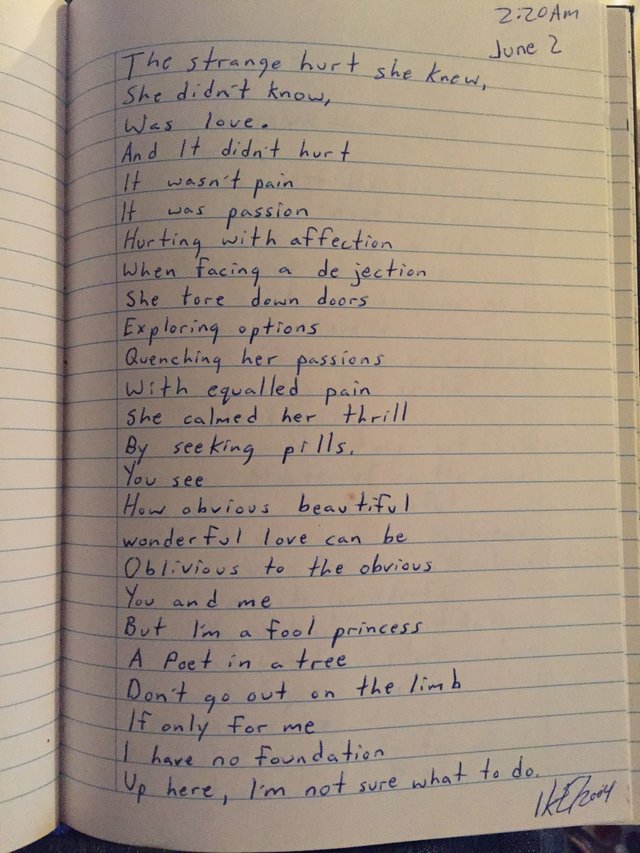 2:20 Am
June 2
The strange hurt she knew,
She didn't know,
Was love.
And It didn't hurt
It wasn't pain
It was passion
Hurting with affection
When facing a de jection
She tore down doors
Exploring options
Quenching her passions
With equalled pain
She calmed her thrill
By seeking pills.
You see
How obvious beautiful
wonderful love can be
Oblivious to the obvious
You and me
But I'm a fool princess
A Poet in a tree
Don't go out on the limb
If only for me
I have no foundation
Up here, I'm not sure what to do.
2004